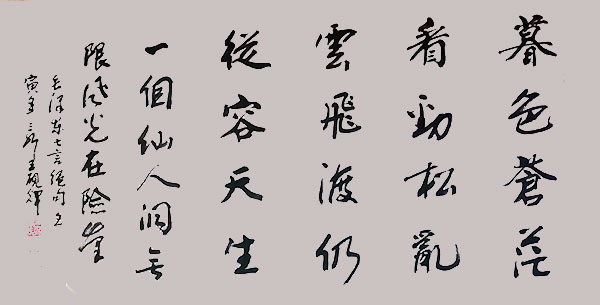 暮色蒼茫
看勁松亂
雲飛渡仍
從容天生
一個仙人洞無
限風光在險峯
毛澤東七言絕句
寅年